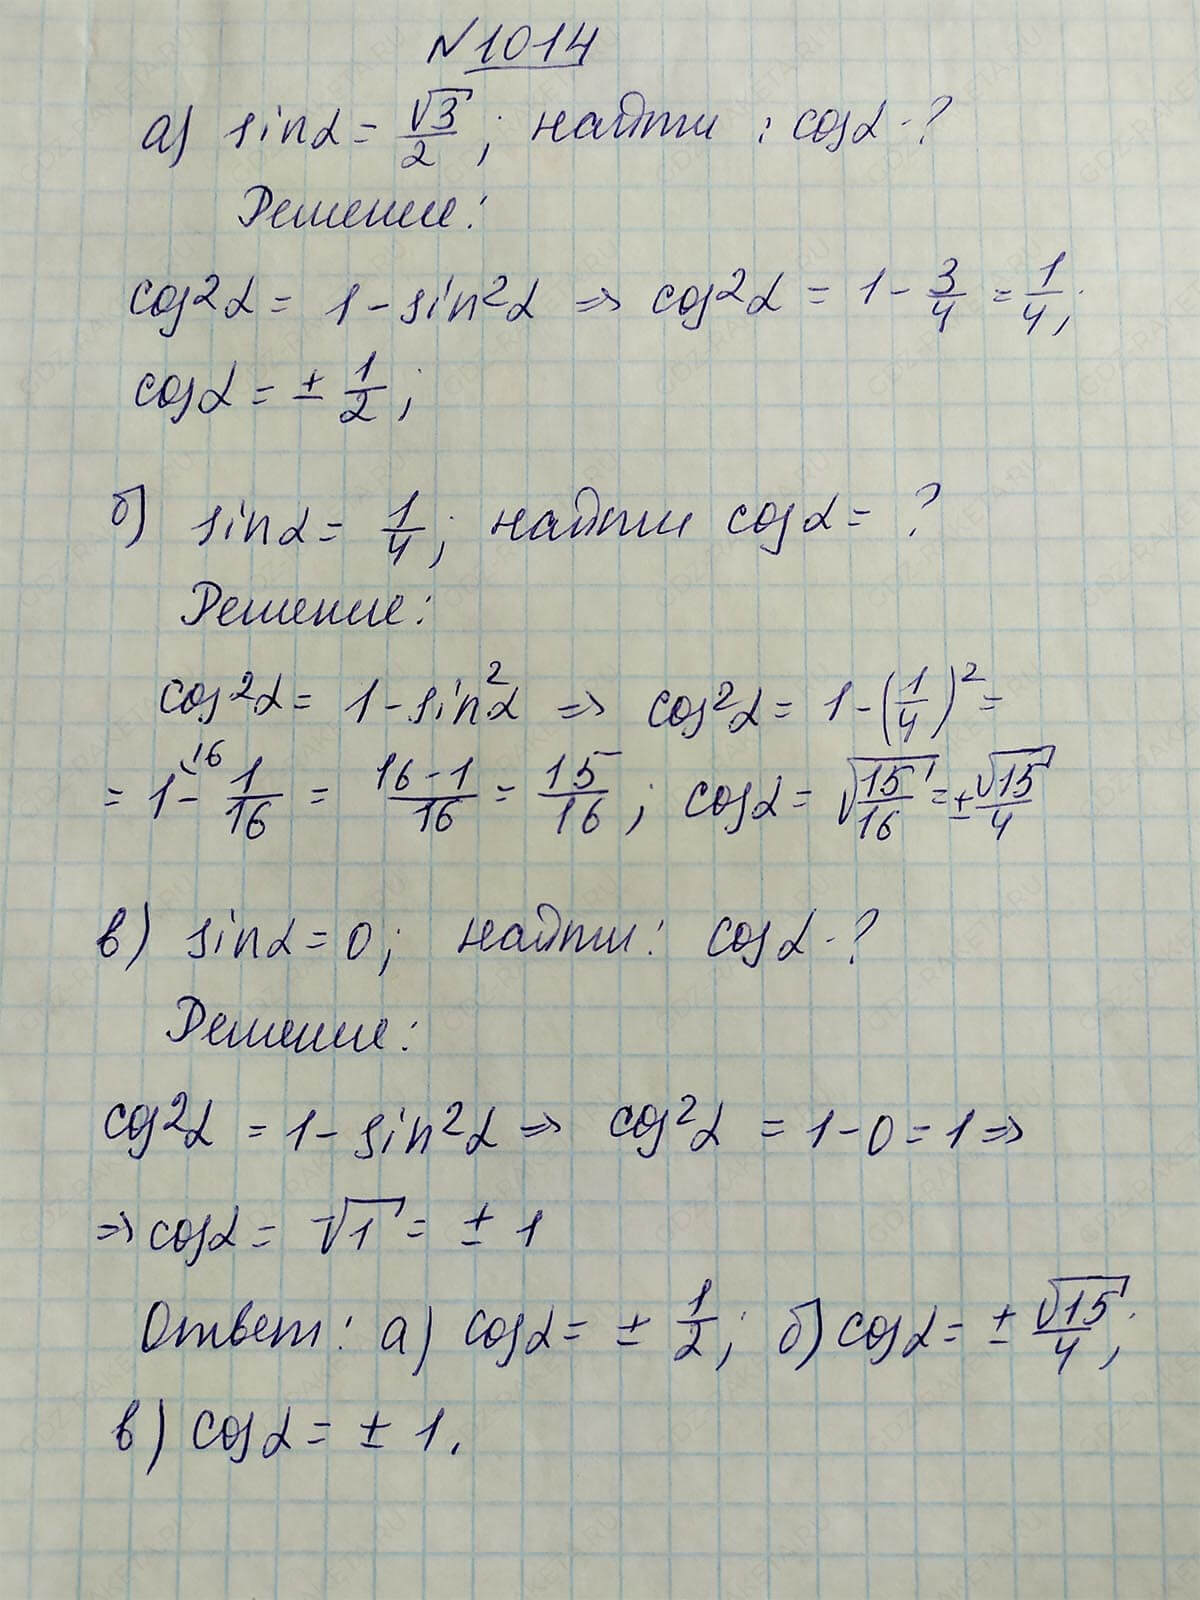 №1014
а) sinα = √3/2; найти: cosα-?
Решение:
cos²α = 1 - sin²α => cos²α = 1 - 3/4 = 1/4;
cosα = ± 1/2;
б) sinα = 1/4; найти cosα = ?
Решение:
cos²α = 1 - sin²α => cos²α = 1 - (1/4)² =
= 1\16 - 1/16 = (16-1)/16 = 15/16; cosα = √(15/16) = ± √15/4
в) sinα = 0; найти: cosα-?
Решение:
cos²α = 1 - sin²α => cos²α = 1 - 0 = 1 =>
=> cosα = √1 = ± 1
Ответ: а) cosα = ± 1/2; б) cosα = ± √15/4;
в) cosα = ± 1.